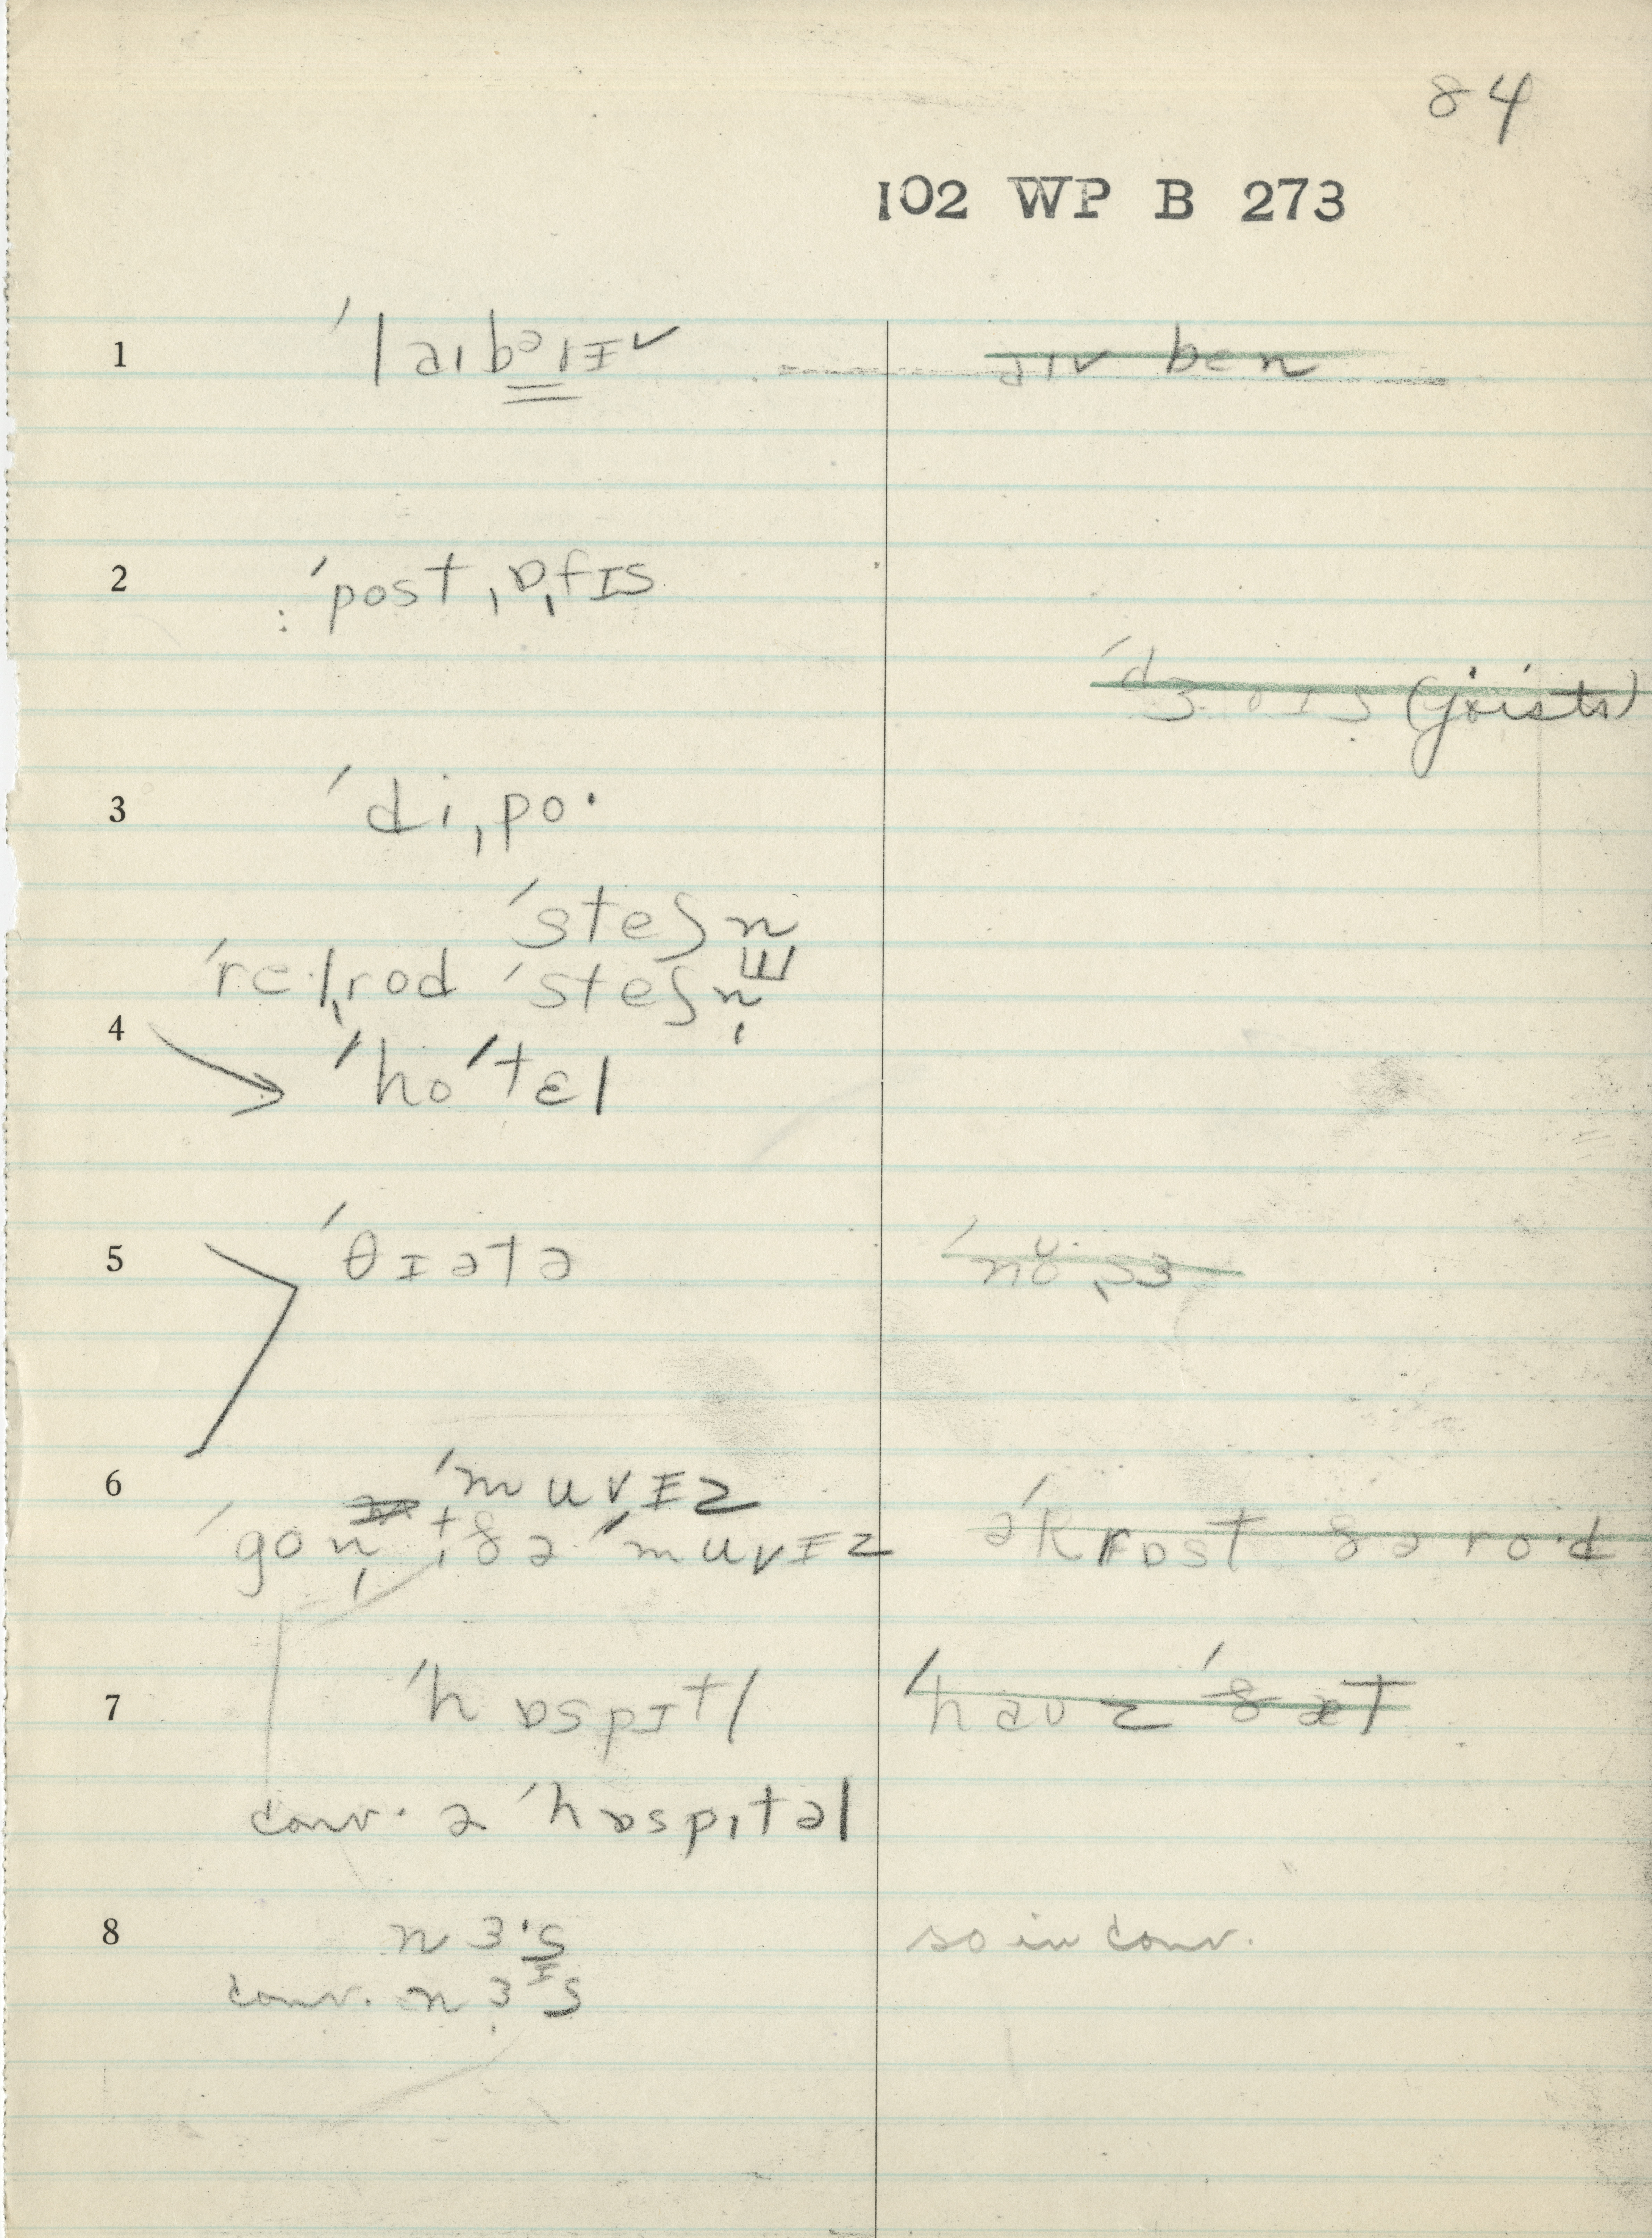 84
102 WP B 273
1 ˈlaɪbərɪv
bɛn
2 ˈpostˌɒˌfɪs
(joists)
3 ˈdiˌpo·
ˈsteʃn
ˈre·lˌrod ˈsteʃn̩
4 ˈhoˈtɛl
5 ˈθɪətə
6 ˈmuvɪz
ˈgon̩ t ðə ˈmuvɪz əˈkrɒst ðə ro·d
7 ˈhɒspɪtl ˈhauz ˈðæt
conv. ə ˈhɒspɪtəl
8 nɜ·s so in conv.
conv. nɜɪs